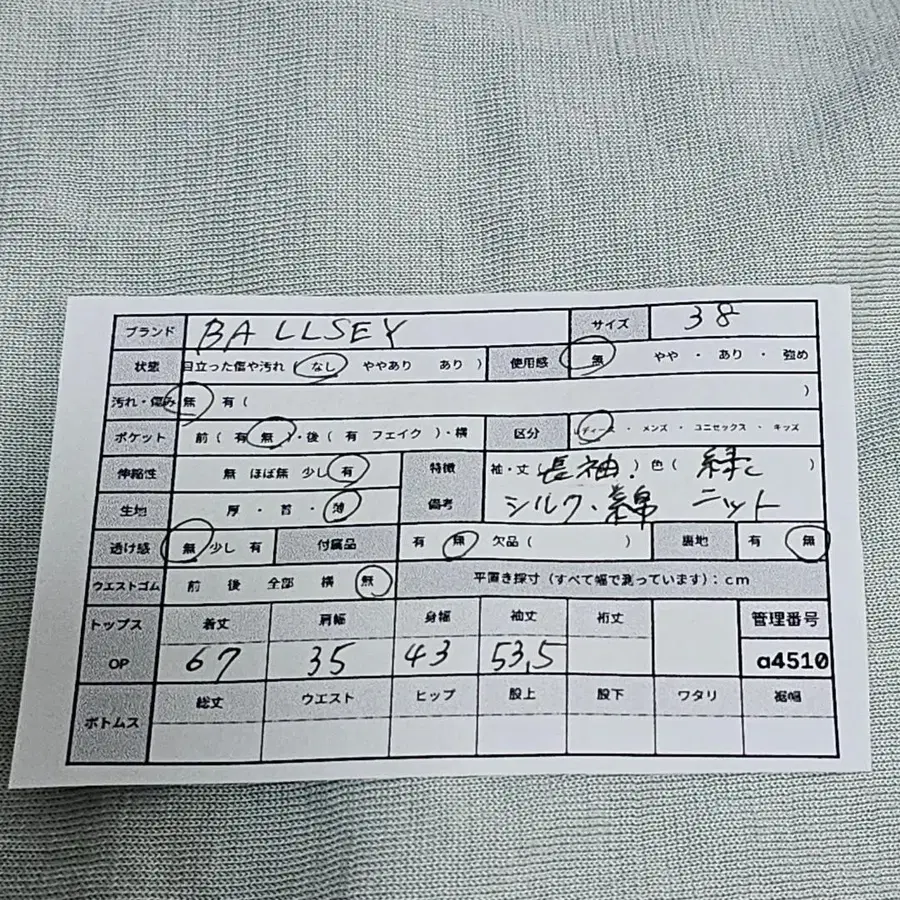 ブランド BALLSEY サイズ 38
状態 目立った傷や汚れ ( なし ややあり あり ) 使用感 無 やや ・ あり ・ 強め
汚れ・傷み 無 有 ( )
ポケット 前 ( 有 無 )・後 ( 有 フェイク )・横 区分 レディース ・ メンズ ・ ユニセックス ・ キッズ
伸縮性 無 ほぼ無 少し 有 特徴 袖・丈 長袖 ) 色 ( 緑 )
生地 厚 ・ 普 ・ 薄 備考 シルク・綿 ニット
透け感 無 少し 有 付属品 有 無 欠品 ( ) 裏地 有 無
ウエストゴム 前 後 全部 横 無 平置き採寸 (すべて幅で測っています) : cm
トップス 着丈 肩幅 身幅 袖丈 裄丈 管理番号
OP 67 35 43 53,5 a4510
ボトムス 総丈 ウエスト ヒップ 股上 股下 ワタリ 裾幅